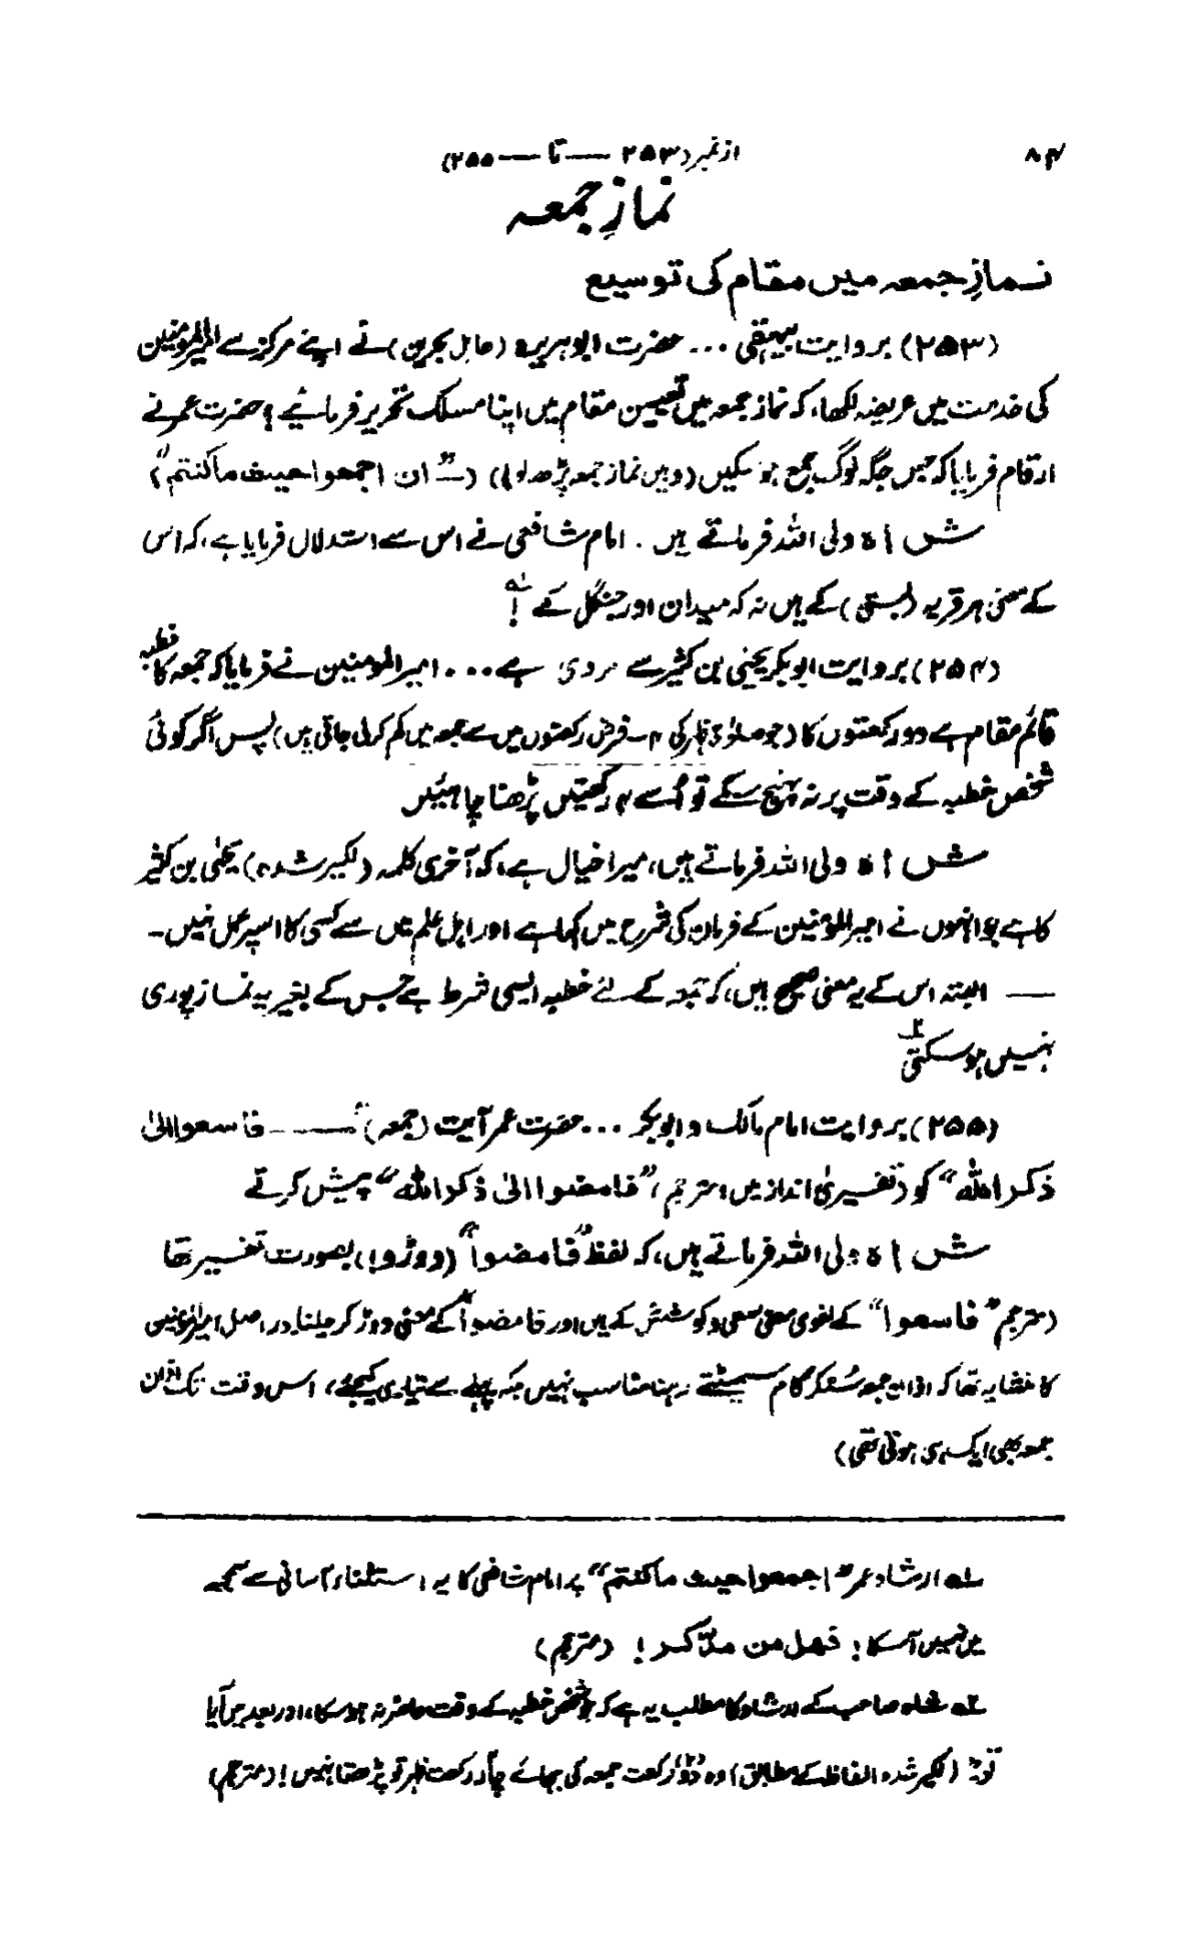 ۸۴
از نمبر (۲۵۳ — تا — ۲۵۵)
نمازِ جمعہ
نمازِ جمعہ میں مقام کی توسیع
(۲۵۳) بروایت بیہقی ... حضرت ابوہریرہ (عامل بحرین) نے اپنے مرکز سے امیرالمومنین
کی خدمت میں عریضہ لکھا، کہ نماز جمعہ میں تعیین مقام میں اپنا مسلک تحریر فرمائیے؟ حضرت عمر نے
ارقام فرمایا کہ جس جگہ لوگ جمع ہو سکیں (وہیں نماز جمعہ پڑھ لو!) (— "ان اجمعوا حیث ما کنتم")
شاہ ولی اللہ فرماتے ہیں. امام شافعی نے اس سے استدلال فرمایا ہے، کہ اس
کے معنی ہر قریہ (بستی) کے ہیں نہ کہ میدان اور جنگل کے! ۱؎
(۲۵۴) بروایت ابوبکر یحییٰ بن کثیر سے مروی ہے ... امیرالمومنین نے فرمایا کہ جمعہ کا خطبہ
قائم مقام ہے دو رکعتوں کا (جو صلوٰۃ ظہر کی ۴ فرض رکعتوں میں سے جمعہ میں کم کر لی جاتی ہیں) پس اگر کوئی
شخص خطبہ کے وقت پر نہ پہنچ سکے تو اُسے ۴ رکعتیں پڑھنا چاہئیں
شاہ ولی اللہ فرماتے ہیں، میرا خیال ہے، کہ آخری کلمہ (لکیر شدہ) یحییٰ بن کثیر
کا ہے جو انہوں نے امیرالمومنین کے فرمان کی شرح میں کہا ہے اور اہل علم میں سے کسی کا اسپر عمل نہیں۔
— البتہ اس کے یہ معنی صحیح ہیں، کہ جمعہ کے لئے خطبہ ایسی شرط ہے جس کے بغیر یہ نماز پوری
نہیں ہو سکتی ۲؎
(۲۵۵) بروایت امام مالک و ابوبکر ... حضرت عمر آیت (جمعہ) "—— فاسعوا الیٰ
ذکر اللہ" کو (تفسیری انداز میں، مترجم) "فامضوا الیٰ ذکر اللہ" پیش کرتے
شاہ ولی اللہ فرماتے ہیں، کہ لفظ "فامضوا" (دوڑو!) بصورت تفسیر تھا
(مترجم "فاسعوا" کے لغوی معنی سعی و کوشش کے ہیں اور "فامضوا" کے معنی دوڑ کر چلنا، دراصل امیرالمومنین
کا منشا یہ تھا کہ اذانِ جمعہ سُنکر کام سمیٹتے رہنا مناسب نہیں بلکہ پہلے سے تیاری کیجئے، اس وقت تک اذان
جمعہ بھی ایک ہی ہوتی تھی)
۱؎ ارشاد عمر "اجمعوا حیث ما کنتم" پر امام شافعی کا یہ استثناء آسانی سے سمجھ
میں نہیں آ سکا! فھل من مدّکر! (مترجم)
۲؎ شاہ صاحب کے ارشاد کا مطلب یہ ہے کہ جو شخص خطبہ کے وقت حاضر نہ ہو سکا، اور بعد میں آیا
تو (لکیر شدہ الفاظ کے مطابق) وہ دو (۲) رکعت جمعہ کی بجائے چار رکعت ظہر تو پڑھتا نہیں! (مترجم)